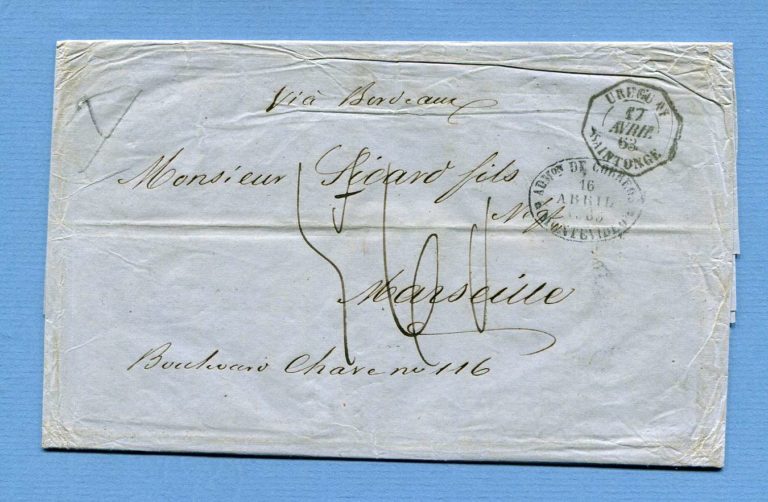 Viâ Bordeaux
URUGUAY
17
AVRIL
63
SAINTONGE
Monsieur Sicard fils
Negt
ADMON DE CORREOS
16
ABRIL
63
MONTEVIDEO
Marseille
Boulevard Chave no 116